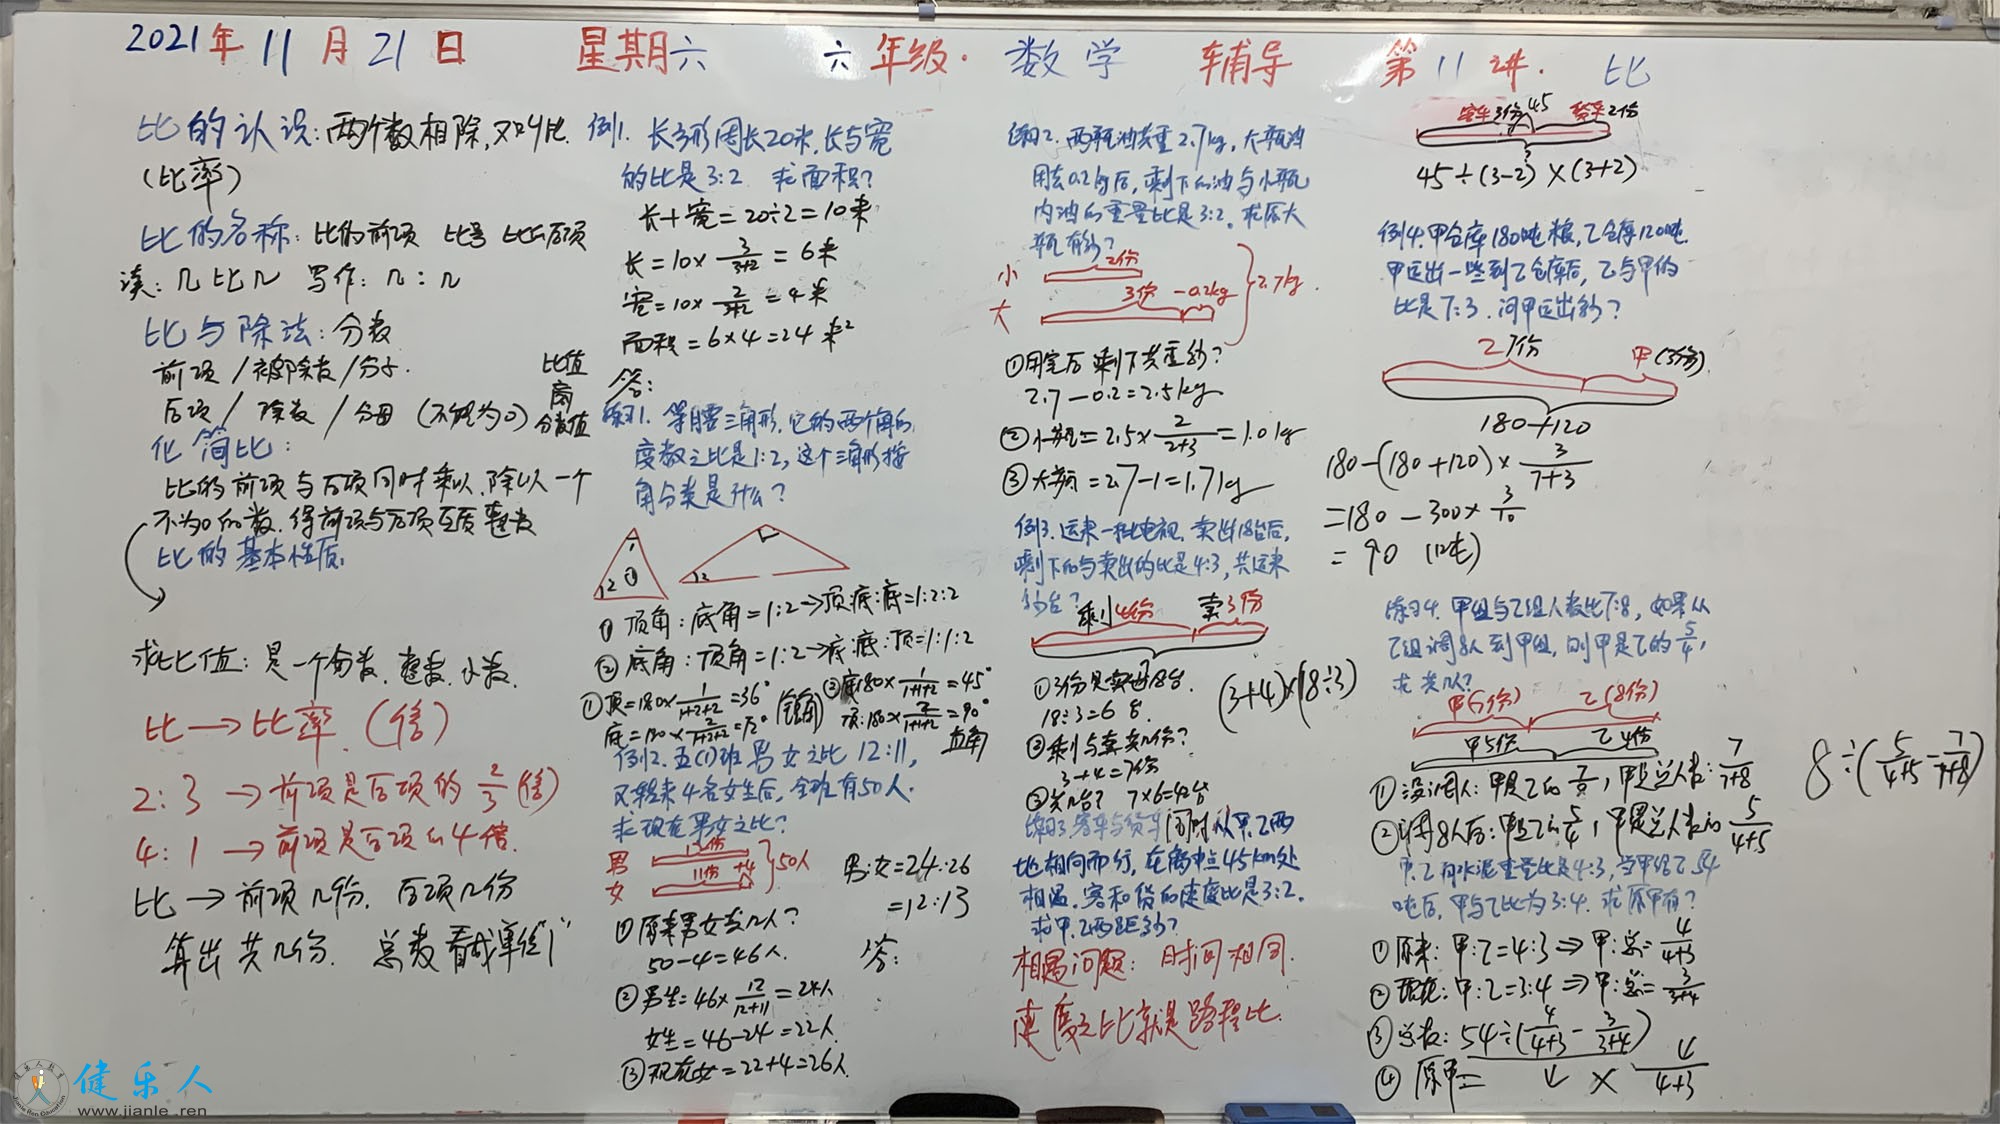 2021年11月21日 星期六 六年级·数学 辅导 第11讲. 比
比的认识:两个数相除,又叫比.
(比率)
比的名称:比的前项 比号 比的后项
读:几比几 写作:几:几
比与除法:分数
前项/被除数/分子.
后项/除数/分母(不能为0)
比值
分数值
化简比:
比的前项与后项同时乘以、除以一个
不为0的数,得前项与后项互质整数
比的基本性质.
求比值:是一个分数、整数、小数.
比→比率.(倍)
2:3→前项是后项的2/3(倍)
4:1→前项是后项的4倍.
比→前项几份.后项几份
算出共几份. 总数看成单位"1"
例1. 长方形周长20米,长与宽
的比是3:2 求面积?
长+宽=20÷2=10米
长=10×3/3+2=6米
宽=10×2/3+2=4米
面积=6×4=24米²
答:
练习1. 等腰三角形,它的两个角的
度数之比是1:2,这个三角形按
角分类是什么?
1
2
①
1
2
① 顶角:底角=1:2→顶:底:底=1:2:2
② 底角:顶角=1:2→底:底:顶=1:1:2
①顶=180×1/1+2+2=36°
底=180×2/1+2+2=72°
(锐角)
②底180×1/1+1+2=45°
顶:180×2/1+1+2=90°
直角
例2.五(1)班男女之比12:11,
又转来4名女生后,全班有50人.
求现在男女之比?
男 12份
女 11份 +4
50人
①原来男女共几人?
50-4=46人.
②男生=46×12/12+11=24人
女生=46-24=22人
③现在女=22+4=26人.
男:女=24:26
=12:13
答:
练习2. 两瓶油共重2.7kg,大瓶油
用去0.2kg后,剩下的油与小瓶
内油的重量比是3:2。求原大
瓶有多少?
小 2份
大 3份 -0.2kg
2.7kg.
①用完后剩下共重多少?
2.7-0.2=2.5kg
②小瓶=2.5×2/2+3=1.0kg
③大瓶=2.7-1=1.7kg
例3.运来一批电视.卖出18台后,
剩下的与卖出的比是4:3,共运来
多少台?
剩4份 卖3份
①3份是卖出18台.
18÷3=6台.
②剩与卖共几份?
3+4=7份
③共几台? 7×6=42台
(3+4)×(18÷3)
练习3.客车与货车同时从甲、乙两
地相向而行,在离中点45km处
相遇.客和货的速度比是3:2.
求甲、乙两距多少?
相遇问题:时间相同.
速度之比就是路程比.
客车3份 45 货车2份
45÷(3-2)×(3+2)
例4.甲仓库180吨粮,乙仓库120吨.
甲运出一些到乙仓库后,乙与甲的
比是7:3.问甲运出多少?
乙7份 甲(3份)
180+120
180-(180+120)×3/7+3
=180-300×3/10
=90(吨)
练习4.甲组与乙组人数比7:8,如果从
乙组调8人到甲组,则甲是乙的5/4,
求共几人?
甲(7份) 乙(8份)
甲5份 乙4份
①没调人:甲是乙的7/8,甲是总人数:7/7+8
②调8人后:甲是乙的5/4,甲是总人数的5/4+5
8÷(5/4+5-7/7+8)
甲、乙有水泥重量比是4:3,当甲给乙54
吨后,甲与乙比为3:4.求原甲有?
①原来:甲:乙=4:3⇒甲:总=4/4+3
②现在:甲:乙=3:4⇒甲:总=3/3+4
③总数:54÷(4/4+3-3/3+4)
④原甲= ↓ × 4/4+3
健乐人
www.jianle.ren